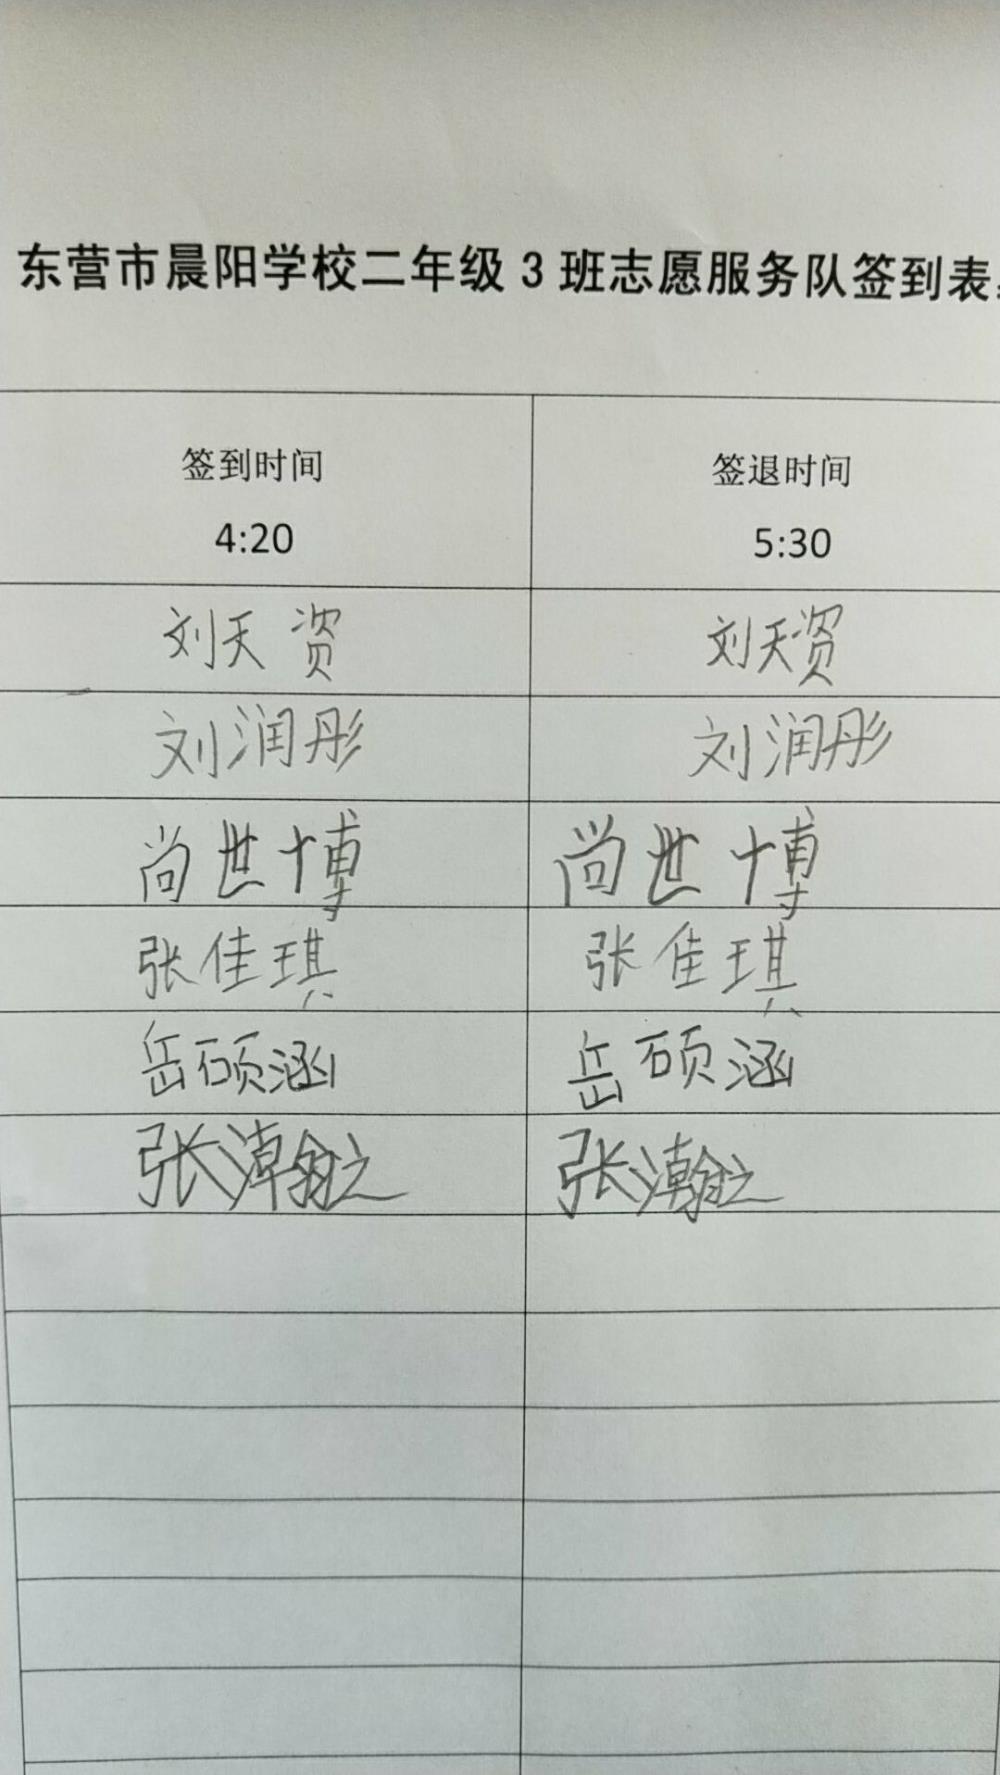 东营市晨阳学校二年级 3 班志愿服务队签到表
签到时间 签退时间
4:20 5:30
刘天资 刘天资
刘润彤 刘润彤
尚世博 尚世博
张佳琪 张佳琪
岳硕涵 岳硕涵
张瀚之 张瀚之